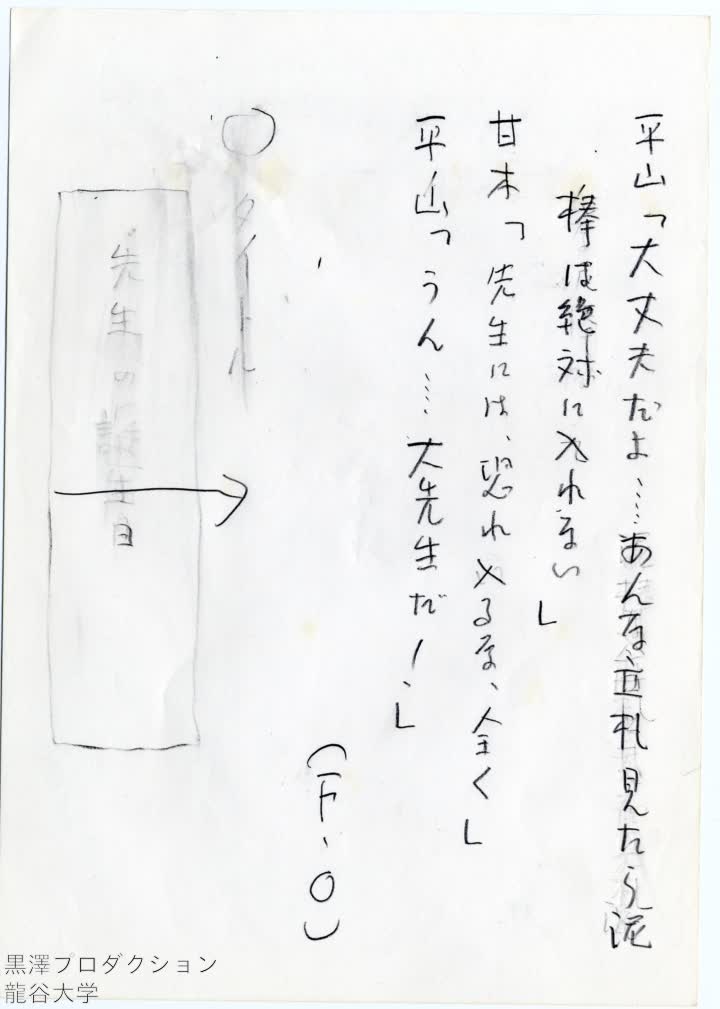 平山「大丈夫だよ……あんな立札見たら泥
棒は絶対に入れない」
甘木「先生には、恐れ入るな、全く」
平山「うん……大先生だ！」
（F・O）
○タイトル
“先生の誕生日
黒澤プロダクション
龍谷大学